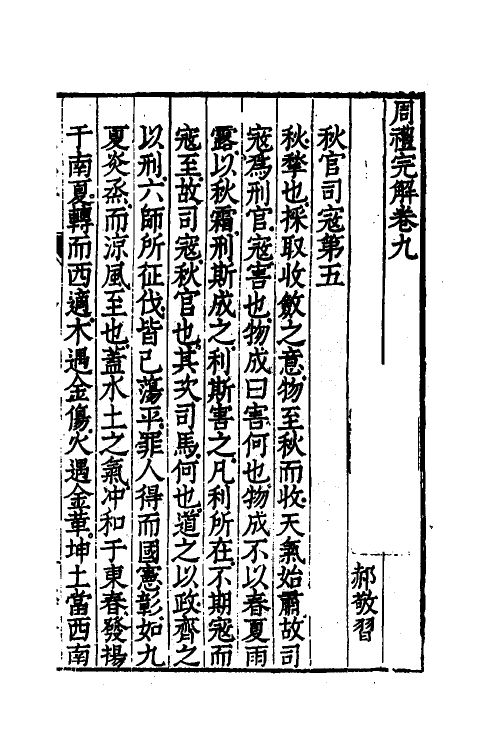 周禮完解卷九
郝敬習
秋官司寇第五
秋揫也採取收斂之意物至秋而收天氣始肅故司
寇為刑官寇害也物成曰害何也物成不以春夏雨
露以秋霜刑斯成之利斯害之凡利所在不期寇而
寇至故司寇秋官也其次司馬何也道之以政齊之
以刑六師所征伐皆已蕩平罪人得而國憲彰如九
夏炎烝而涼風至也蓋水土之氣冲和于東春發揚
于南夏轉而西適木遇金傷火遇金革坤土當西南